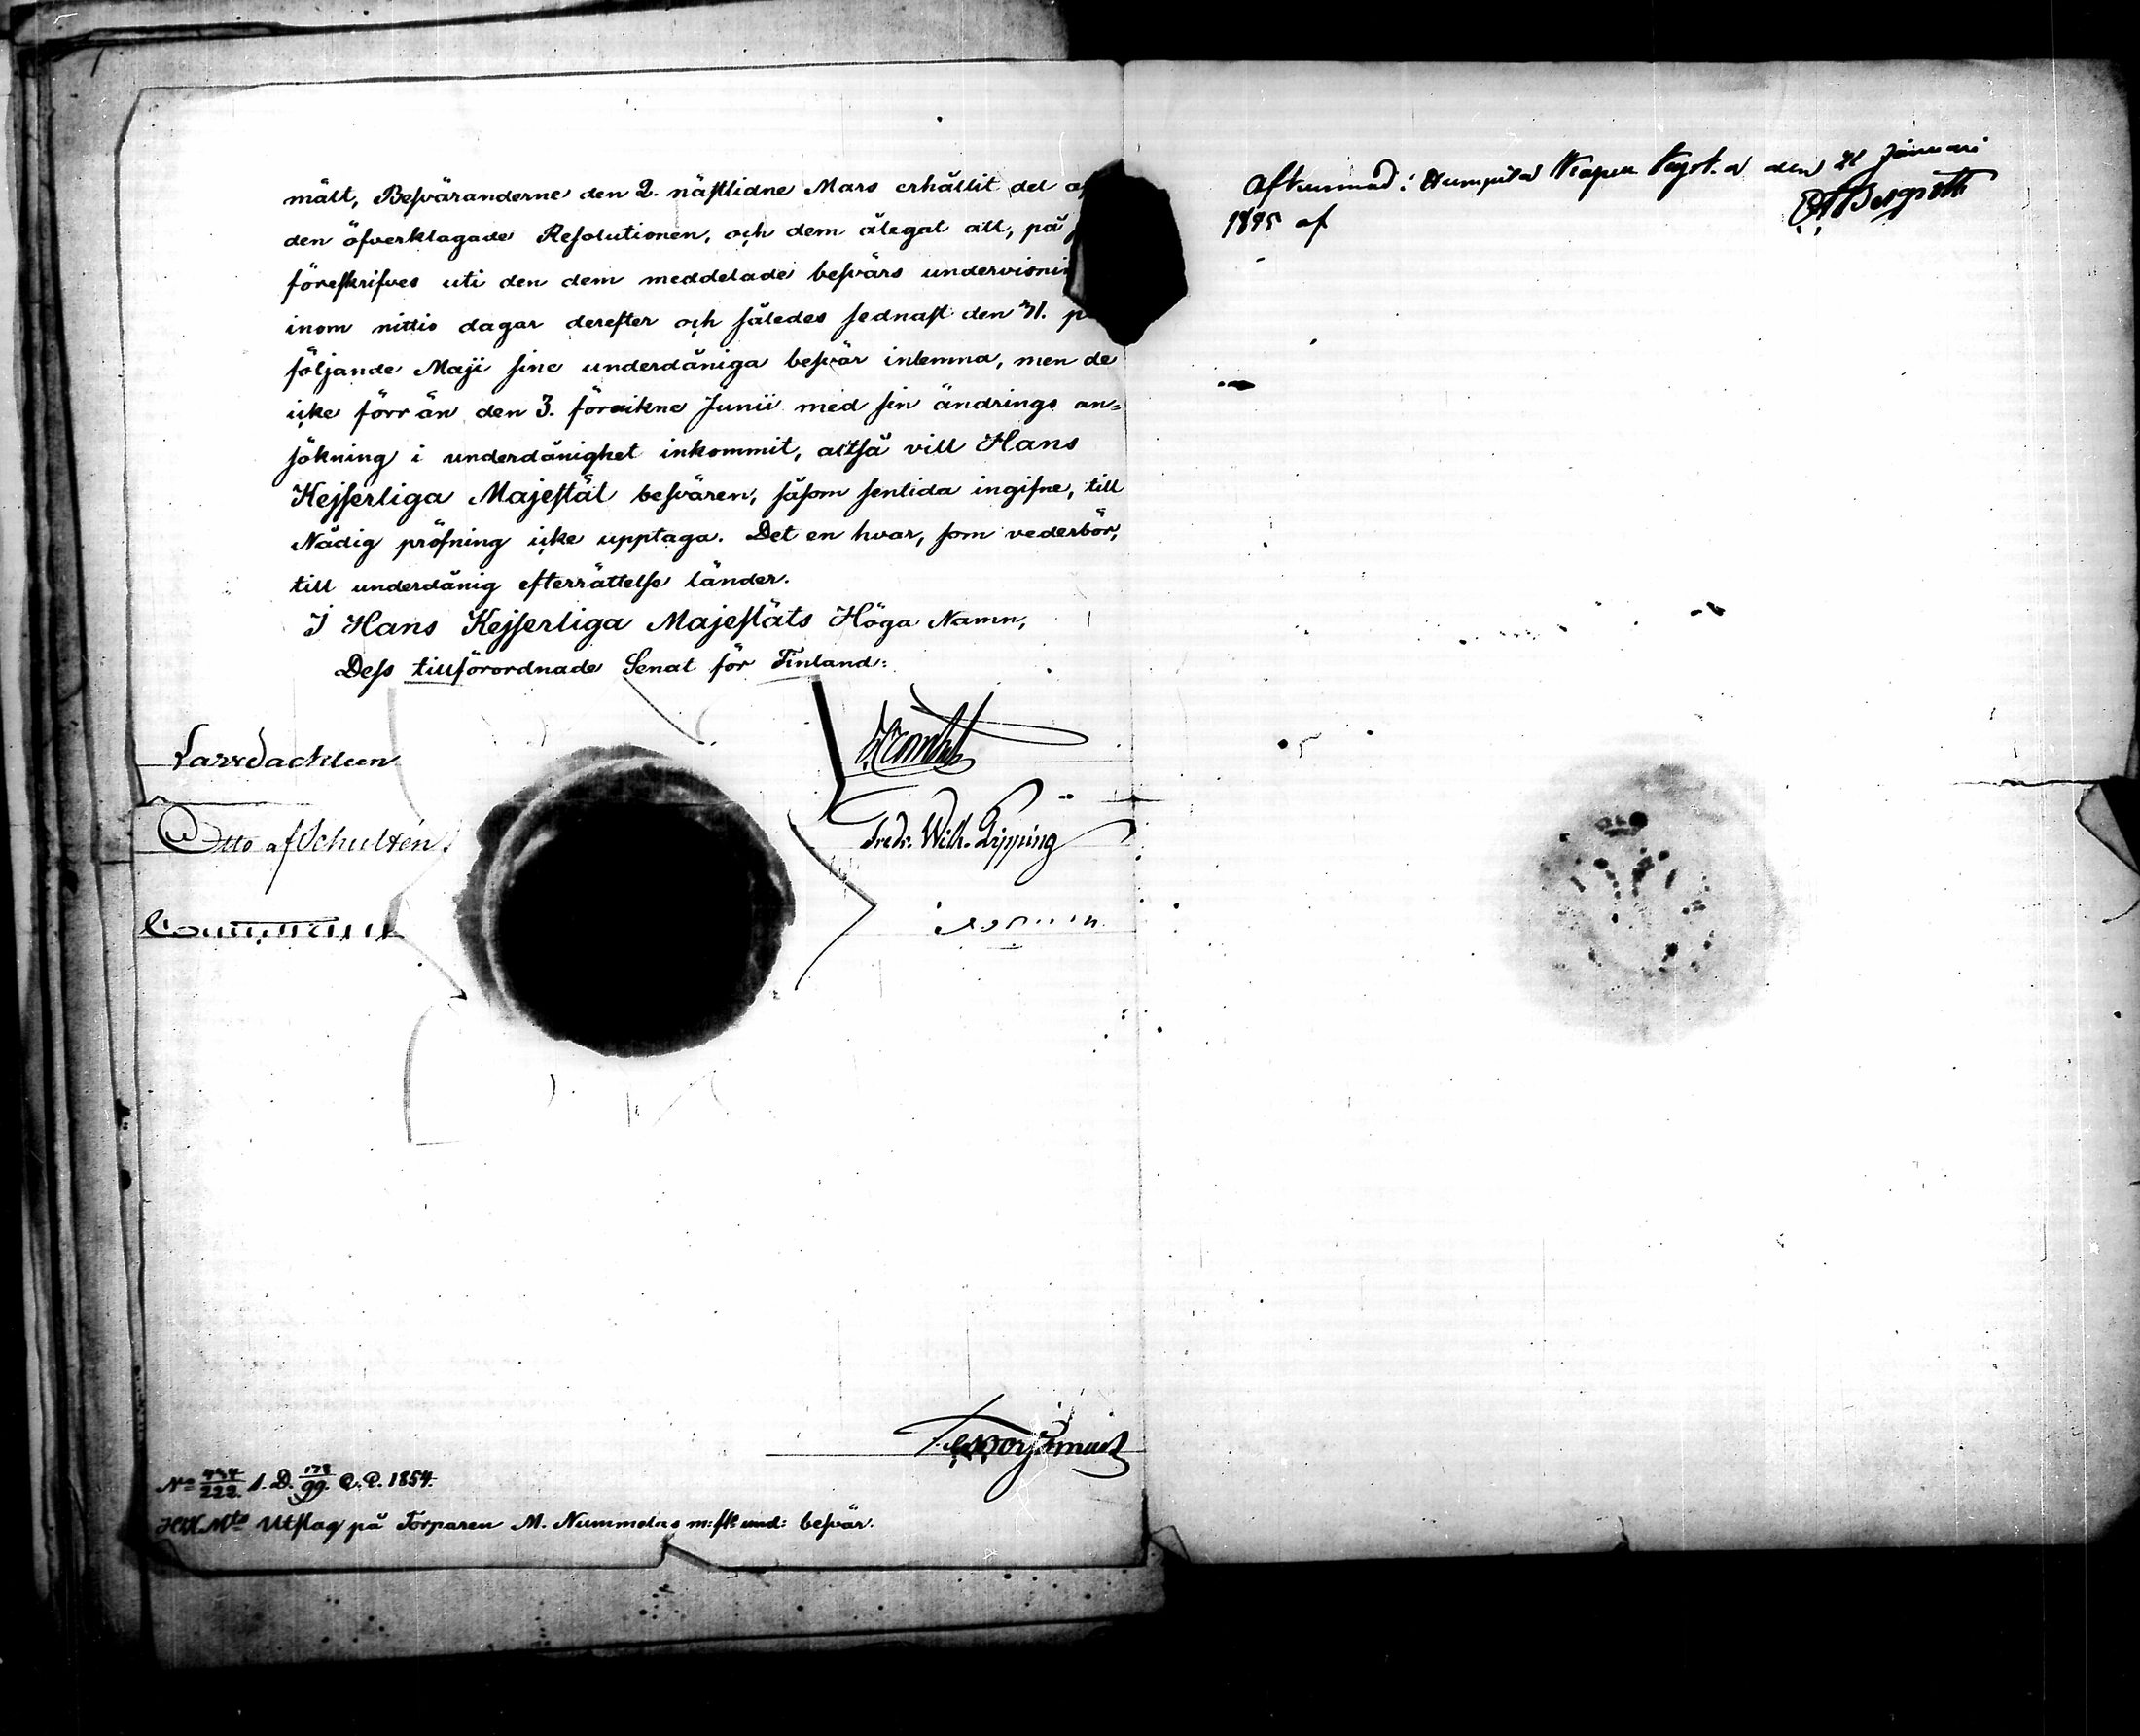 mält, Besväranderne den 2. nästlidne Mars erhållit del af
den öfverklagade Resolutionen, och dem ålegat att, på
föreskrifves uti den dem meddelade besvärs undervisnin
inom nittio dagar derefter och således sednast den 31. p
följande Maji sine underdåniga besvär inlemna, men de
icke förr än den 3. förvikne Junii med sin ändrings an=
sökning i underdånighet inkommit, altså vill Hans
Kejserliga Majestät besvären, såsom sentida ingifne, till
Nådig pröfning icke upptaga. Det en hvar, som vederbör,
till underdånig efterrättelse länder.
I Hans Kejserliga Majestäts Höga Namn,
Dess tillförordnade Senat för Finland:
Lars Sackleen
Otto af Schultén
Fredr. Wilh. Pipping
No 222. 1. D. 178/99. E.E. 1854.
HKMts Utslag på Torparen M. Nummelas m: fl: und: besvär.
Afkunnad i Humpila den 21 Januari
1895 af